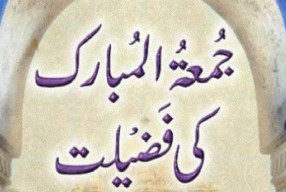 جُمعۃُ المُبارک
کی فَضیلت